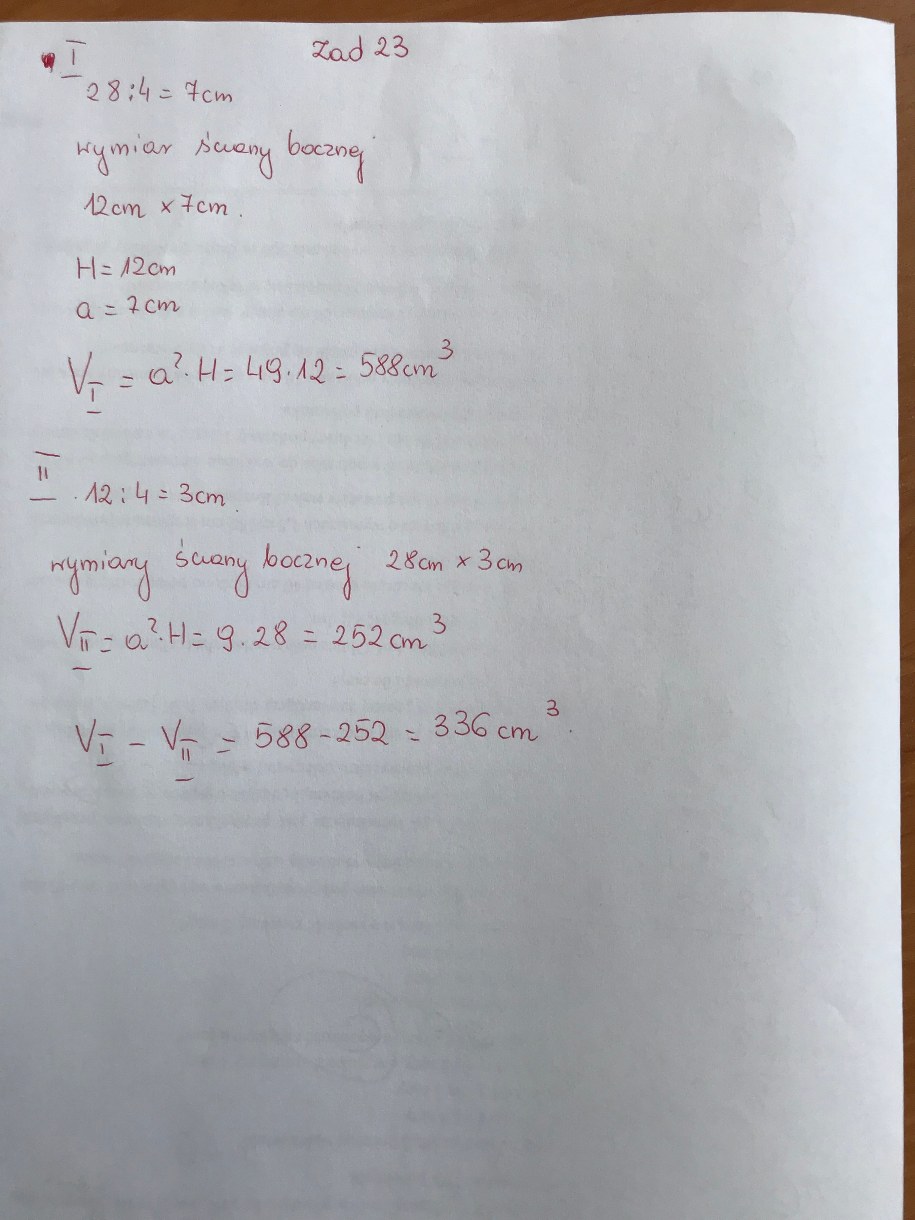 I Zad 23
28:4 = 7cm
wymiar ściany bocznej
12cm × 7cm.
H = 12cm
a = 7cm
V_I = a²·H = 49·12 = 588cm³
II . 12:4 = 3cm.
wymiary ściany bocznej 28cm × 3cm
V_II = a²·H = 9.28 = 252cm³
V_I - V_II = 588 - 252 = 336 cm³.